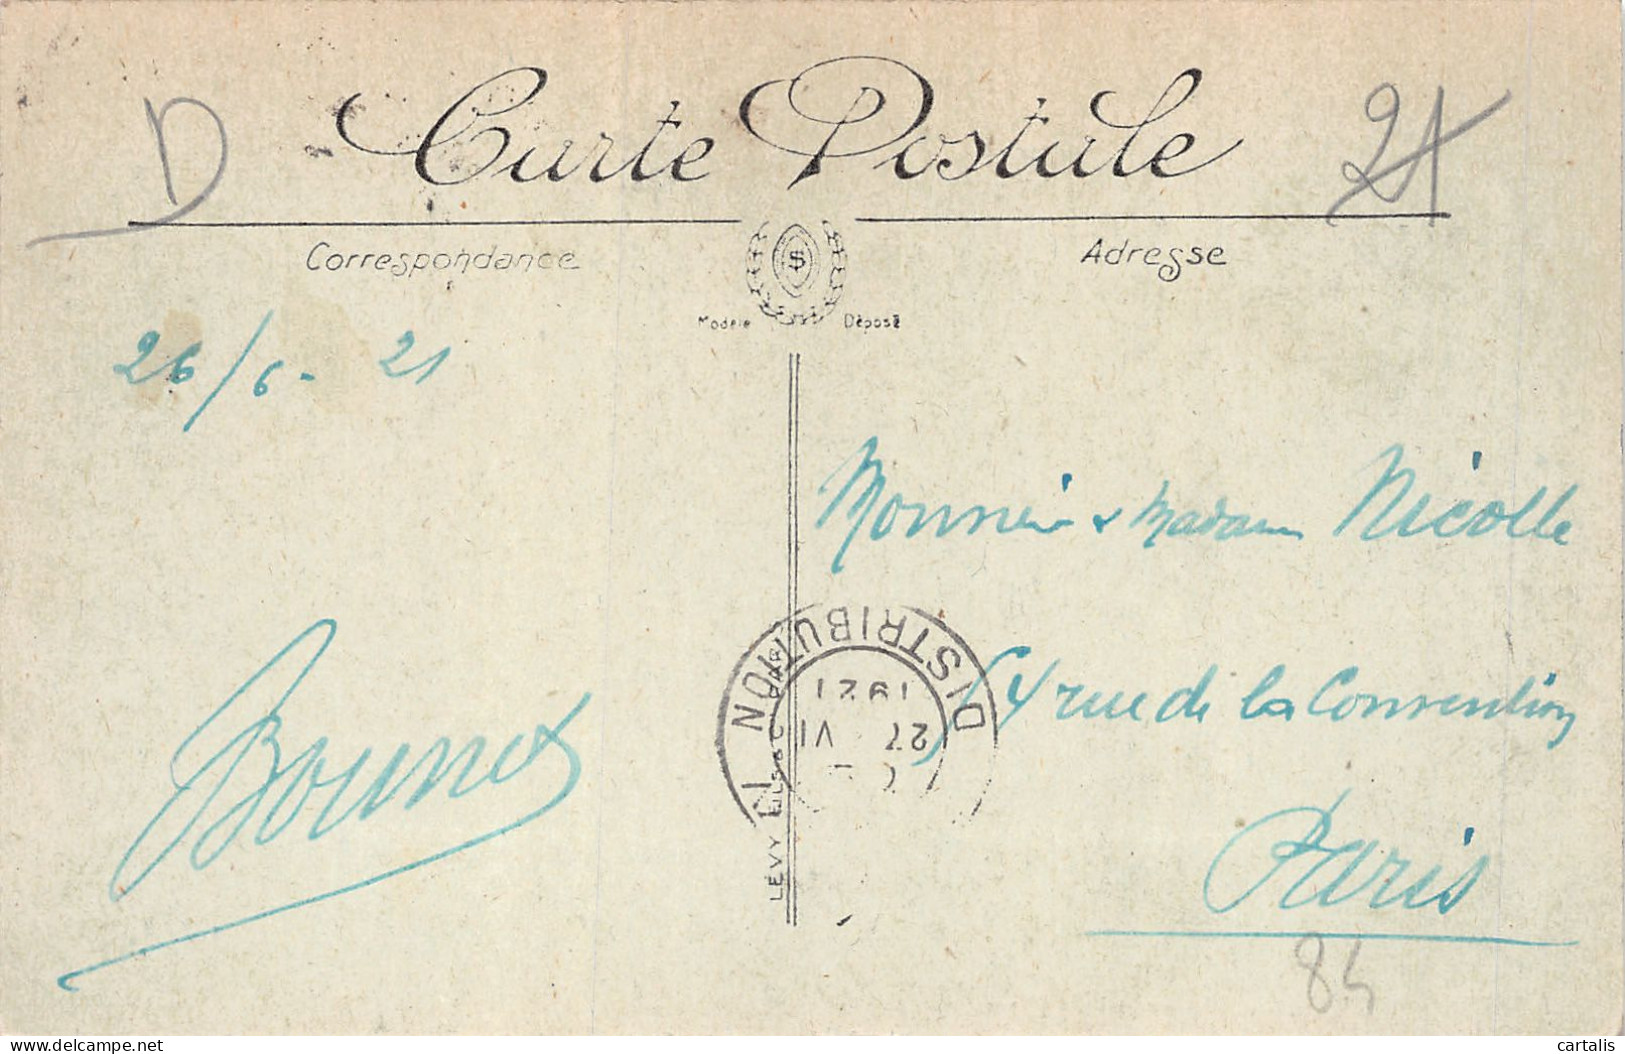 D
Carte Postale
21
Correspondance
Adresse
Modèle Déposé
26/6 - 21
Monsieur & Madame Nicolle
DISTRIBUTION
1921
27 VI
64 rue de la Convention
Paris
Bonnet
LEVY FILS & C
84
cartalis